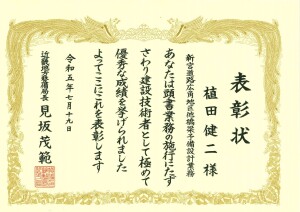 表彰状
植田健二 様
新宮道路広角地区他橋梁予備設計業務
あなたは頭書業務の施行にたず
さわり建設技術者として極めて
優秀な成績を挙げられました
よってここにこれを表彰します
令和五年七月十九日
近畿地方整備局長 見坂茂範